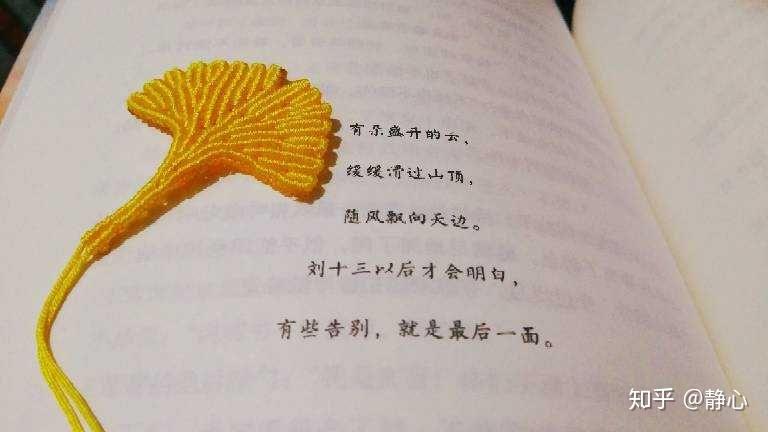 有朵盛开的云，
缓缓滑过山顶，
随风飘向天边。
刘十三以后才会明白，
有些告别，就是最后一面。
知乎 @静心